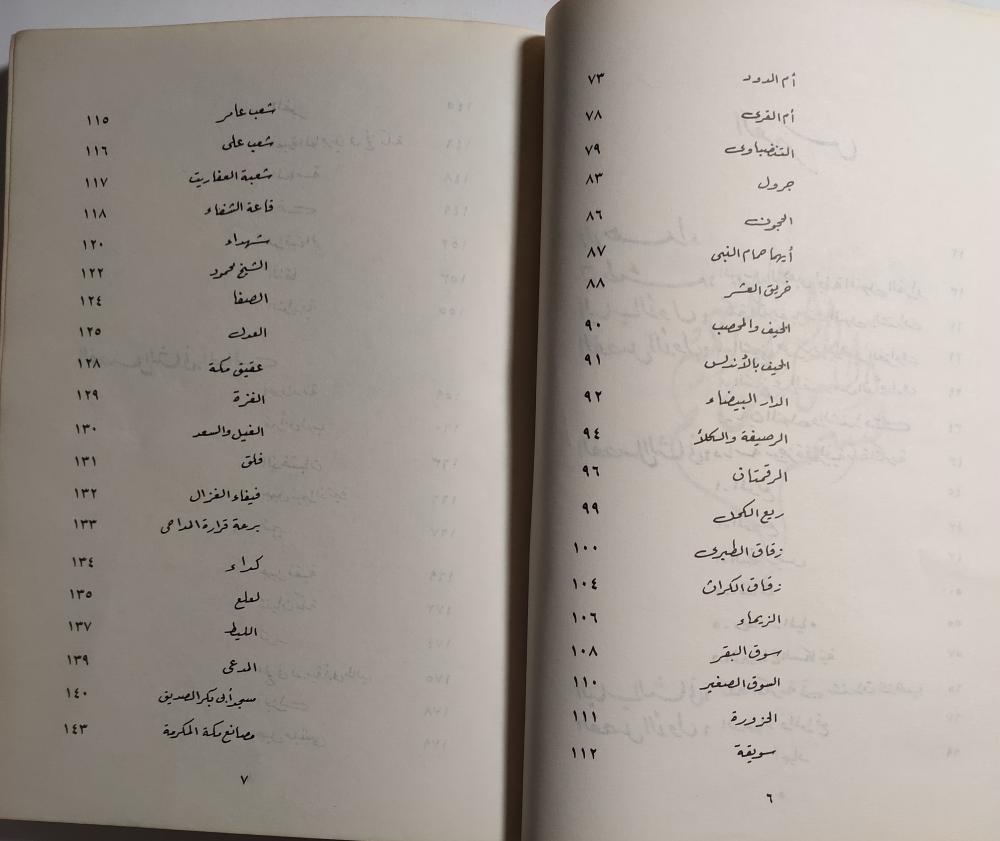 أم الدود ٧٣
أم القرى ٧٨
التنضباوى ٧٩
جرول ٨٣
الحجون ٨٦
أيها حمام النبى ٨٧
خريق العشر ٨٨
الخيف والمحصب ٩٠
الخيف بالأندلس ٩١
الدار البيضاء ٩٢
الرصيفة والسكلأ ٩٤
الرقمتان ٩٦
ريع الكحل ٩٩
زقاق الطبرى ١٠٠
زقاق الكراث ١٠٤
الزيماء ١٠٦
سوق البقر ١٠٨
السوق الصغير ١١٠
الحزورة ١١١
سويقة ١١٢
٦
شعب عامر ١١٥
شعب على ١١٦
شعبة العفاريت ١١٧
قاعة الشفاء ١١٨
شهداء ١٢٠
الشيخ محمود ١٢٢
الصفا ١٢٤
العدل ١٢٥
عقيق مكة ١٢٨
الغزة ١٢٩
الغيل والسعد ١٣٠
فلق ١٣١
فيفاء الغزال ١٣٢
برعة قرارة المداحى ١٣٣
كداء ١٣٤
لعلع ١٣٥
الليط ١٣٧
المدعى ١٣٩
مسجد أبى بكر الصديق ١٤٠
مصانع مكة المكرمة ١٤٣
٧